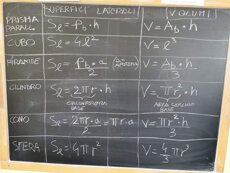 SUPERFICI LATERALI VOLUMI
PRISMA
PARALL. Sℓ = Pb · h V = Ab · h
CUBO Sℓ = 4ℓ² V = ℓ³
PIRAMIDE Sℓ = Pb · a / 2 V = Ab · h / 3
CILINDRO Sℓ = 2πr · h V = πr² · h
CIRCONFERENZA
BASE
AREA CERCHIO
BASE
CONO Sℓ = 2πr · a / 2 = πr · a V = πr² · h / 3
SFERA Sℓ = 4πr² V = 4/3 πr³